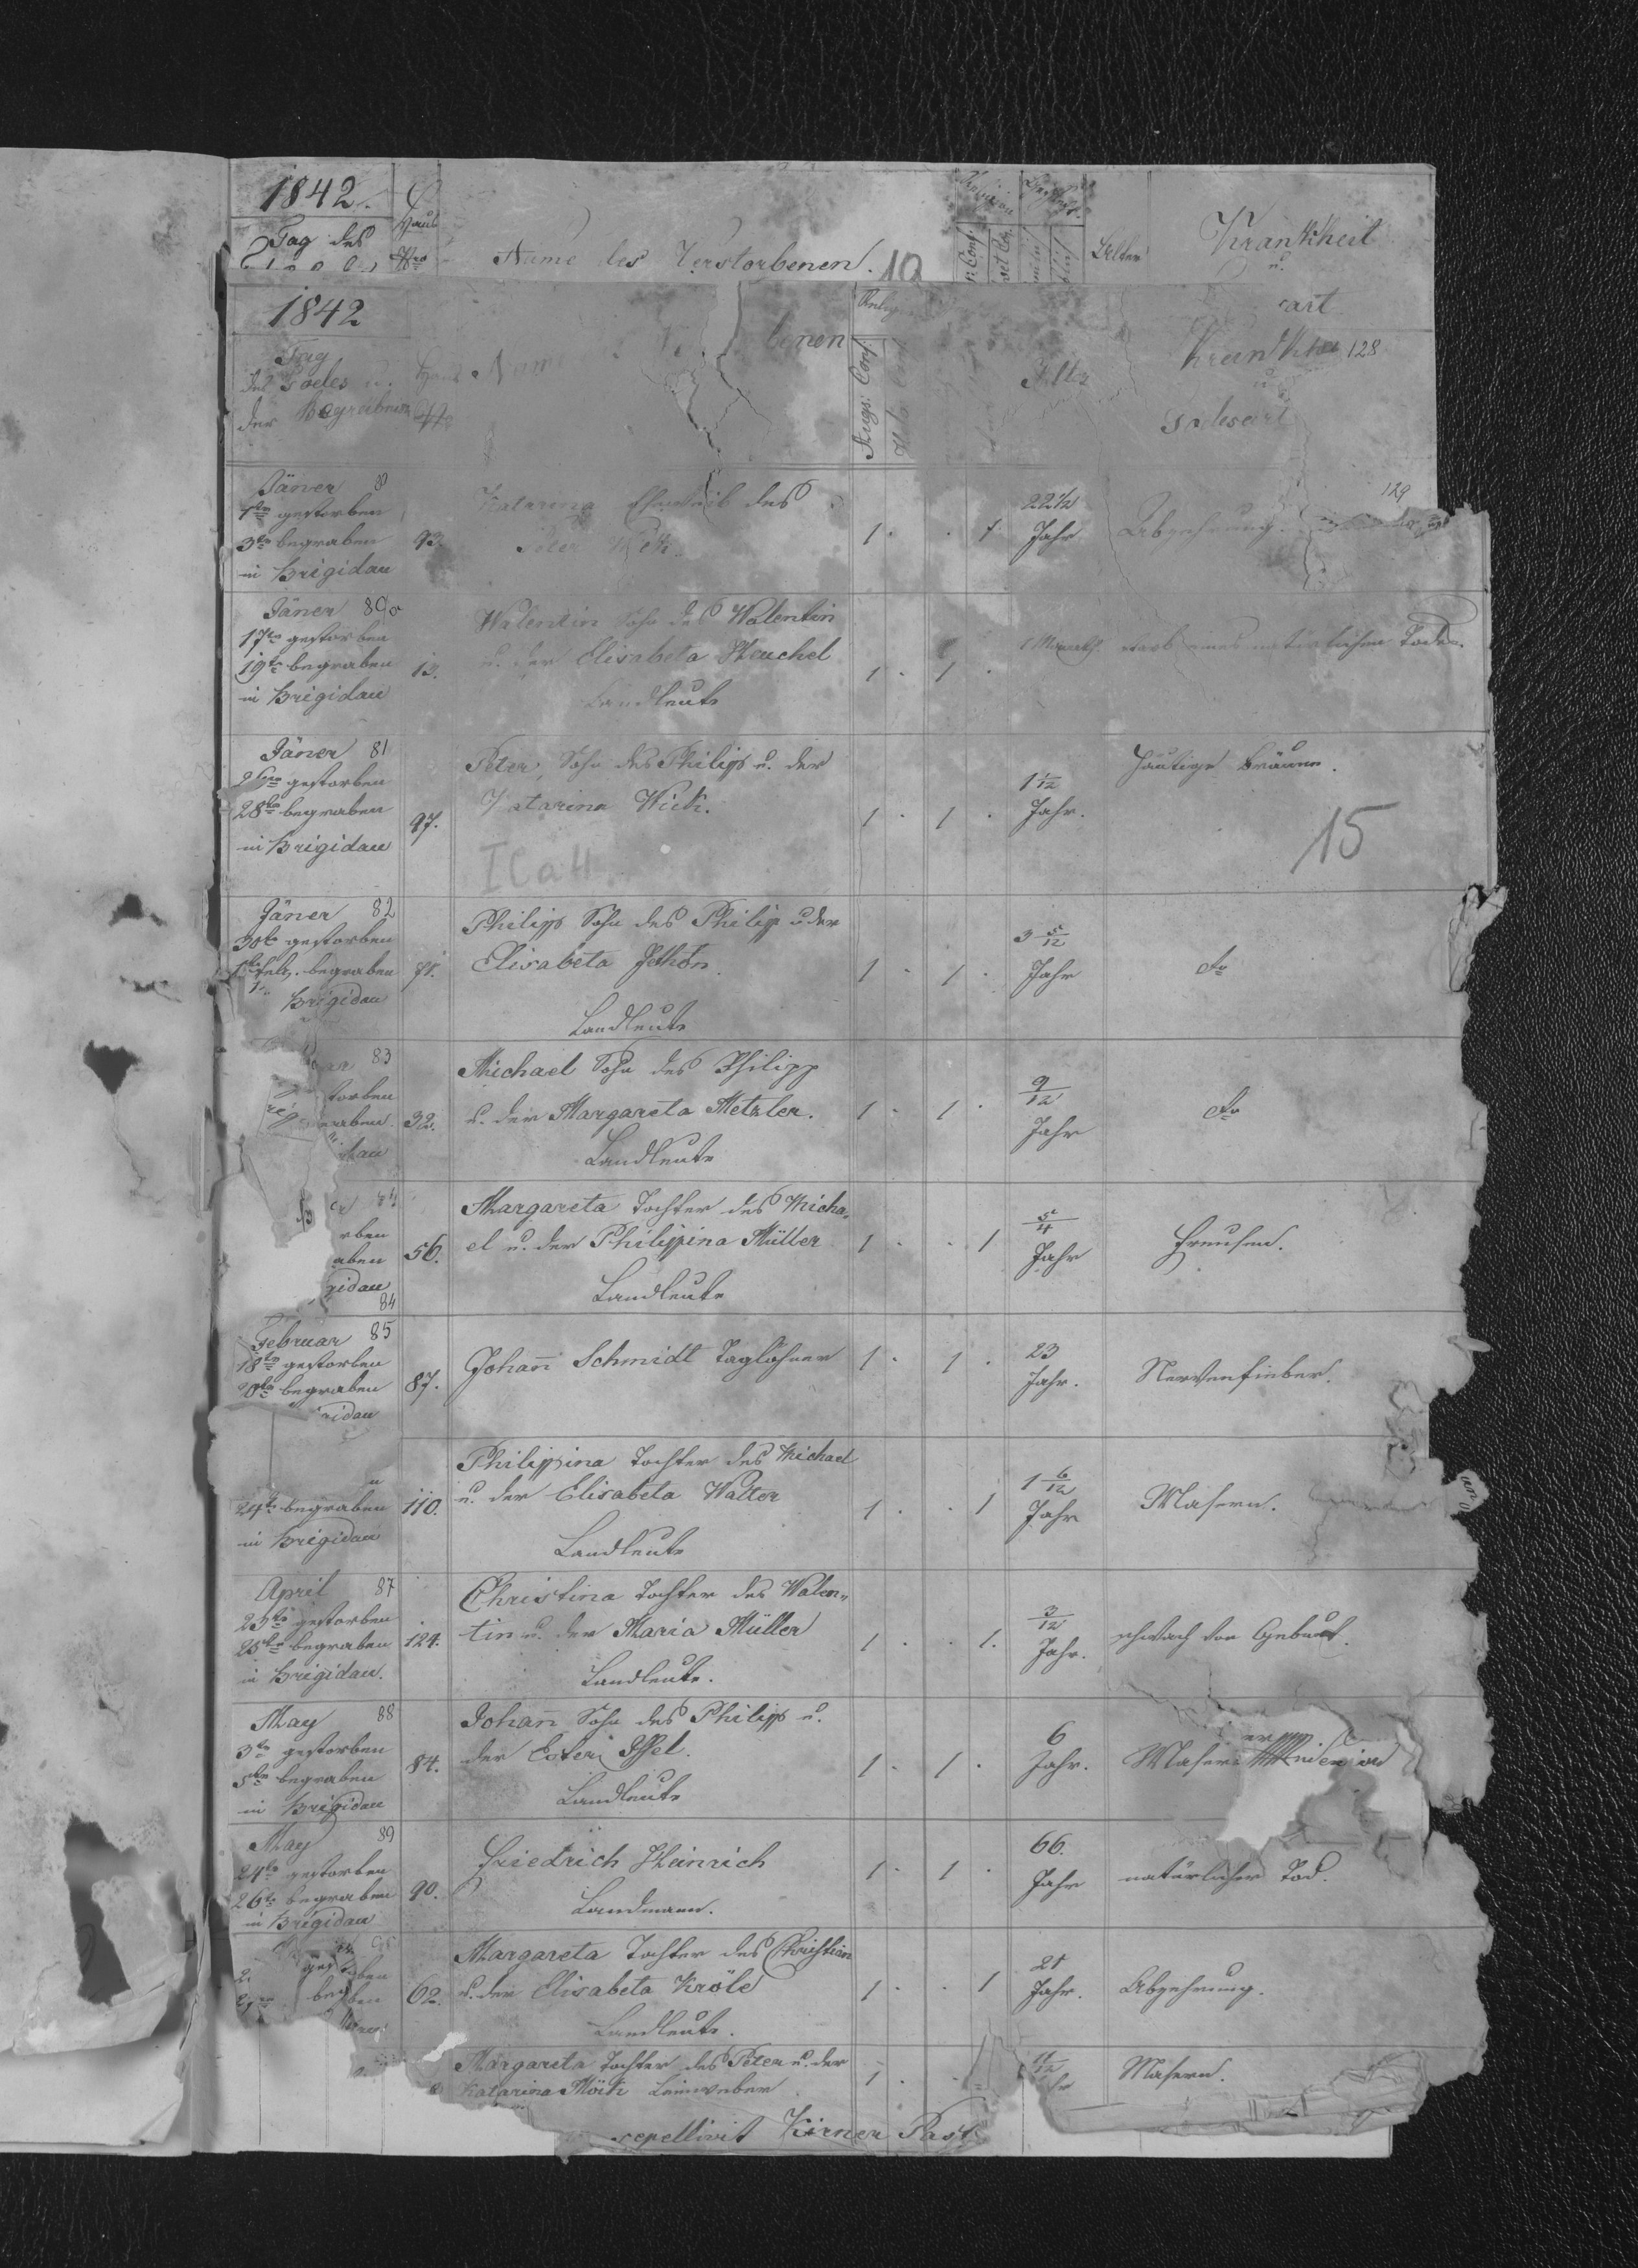 1842.
Haus
Tag des
Nro
Name des Verstorbenen. 10
Religion
Alter
Krankheit
u.
art
1842
Tag
des Todes u.
der Begräbniss
Haus
Nro
Name
benen
Augs. Conf.
Alter
Krankheit 128
u.
Todesart
129
Jäner
1ten gestorben
3ten begraben
in Brigidau
93.
Katarina Eheweib des
Peter Wick.
1 . . 1
22 1/2
Jahr
Abzehrung.
Jäner
17ten gestorben
19te begraben
in Brigidau
13.
Walentin Sohn des Walentin
u. der Elisabeta Heuchel
Landleute
1 . 1 .
1 Monath.
starb eines natürlichen Todes.
Jäner 81
26ten gestorben
28te begraben
in Brigidau
97.
Peter, Sohn des Philipp u. der
Katarina Wick.
I Ca 4.
1 . 1 .
1 1/12
Jahr.
Häutige Bräune.
15
Jäner 82
30te gestorben
1ten Feb. begraben
Brigidau
71.
Philipp Sohn des Philipp u der
Elisabeta Jethon
Landleute
1 . 1 .
3 5/12
Jahr
dto
83
storben
raben
dau
32.
Michael Sohn des Philipp
u. der Margareta Metzler.
Landleute
1 . 1 .
9/12
Jahr
dto
84
rben
aben
gidau
84
56.
Margareta Tochter des Micha,
el u. der Philippina Müller
Landleute
1 . . 1
5/4
Jahr
Freusen.
Februar 85
18ten gestorben
20te begraben
ridau
87.
Johann Schmidt Taglöhner
1 . 1 .
23
Jahr.
Nervenfieber.
24te begraben
in Brigidau
110.
Philippina Tochter des Michael
u. der Elisabeta Walter
Landleute
1 . . 1
1 6/12
Jahr
Masern.
April 87
23te gestorben
25te begraben
in Brigidau.
124.
Christina Tochter des Walen„
tin u. der Maria Müller
Landleute.
1 . . 1.
3/12
Jahr.
schwach von Geburt.
May 88
3te gestorben
5ten begraben
in Brigidau
84.
Johann Sohn des Philipp u.
der Ester Issel.
Landleute
1 . 1 .
6
Jahr.
Masern
May 89
24te gestorben
26te begraben
in Brigidau
90.
Friedrich Heinrich
Landmann.
1 . 1 .
66.
Jahr
natürlicher Tod.
62.
Margareta Tochter des Christian
u. der Elisabeta Kröle
Landleute.
1 . . 1
21
Jahr.
Abzehrung.
Margareta Tochter des Peter u. der
Katarina Möck Leinweber
1 .
11/12
Masern.
sepellivit Kirner Past